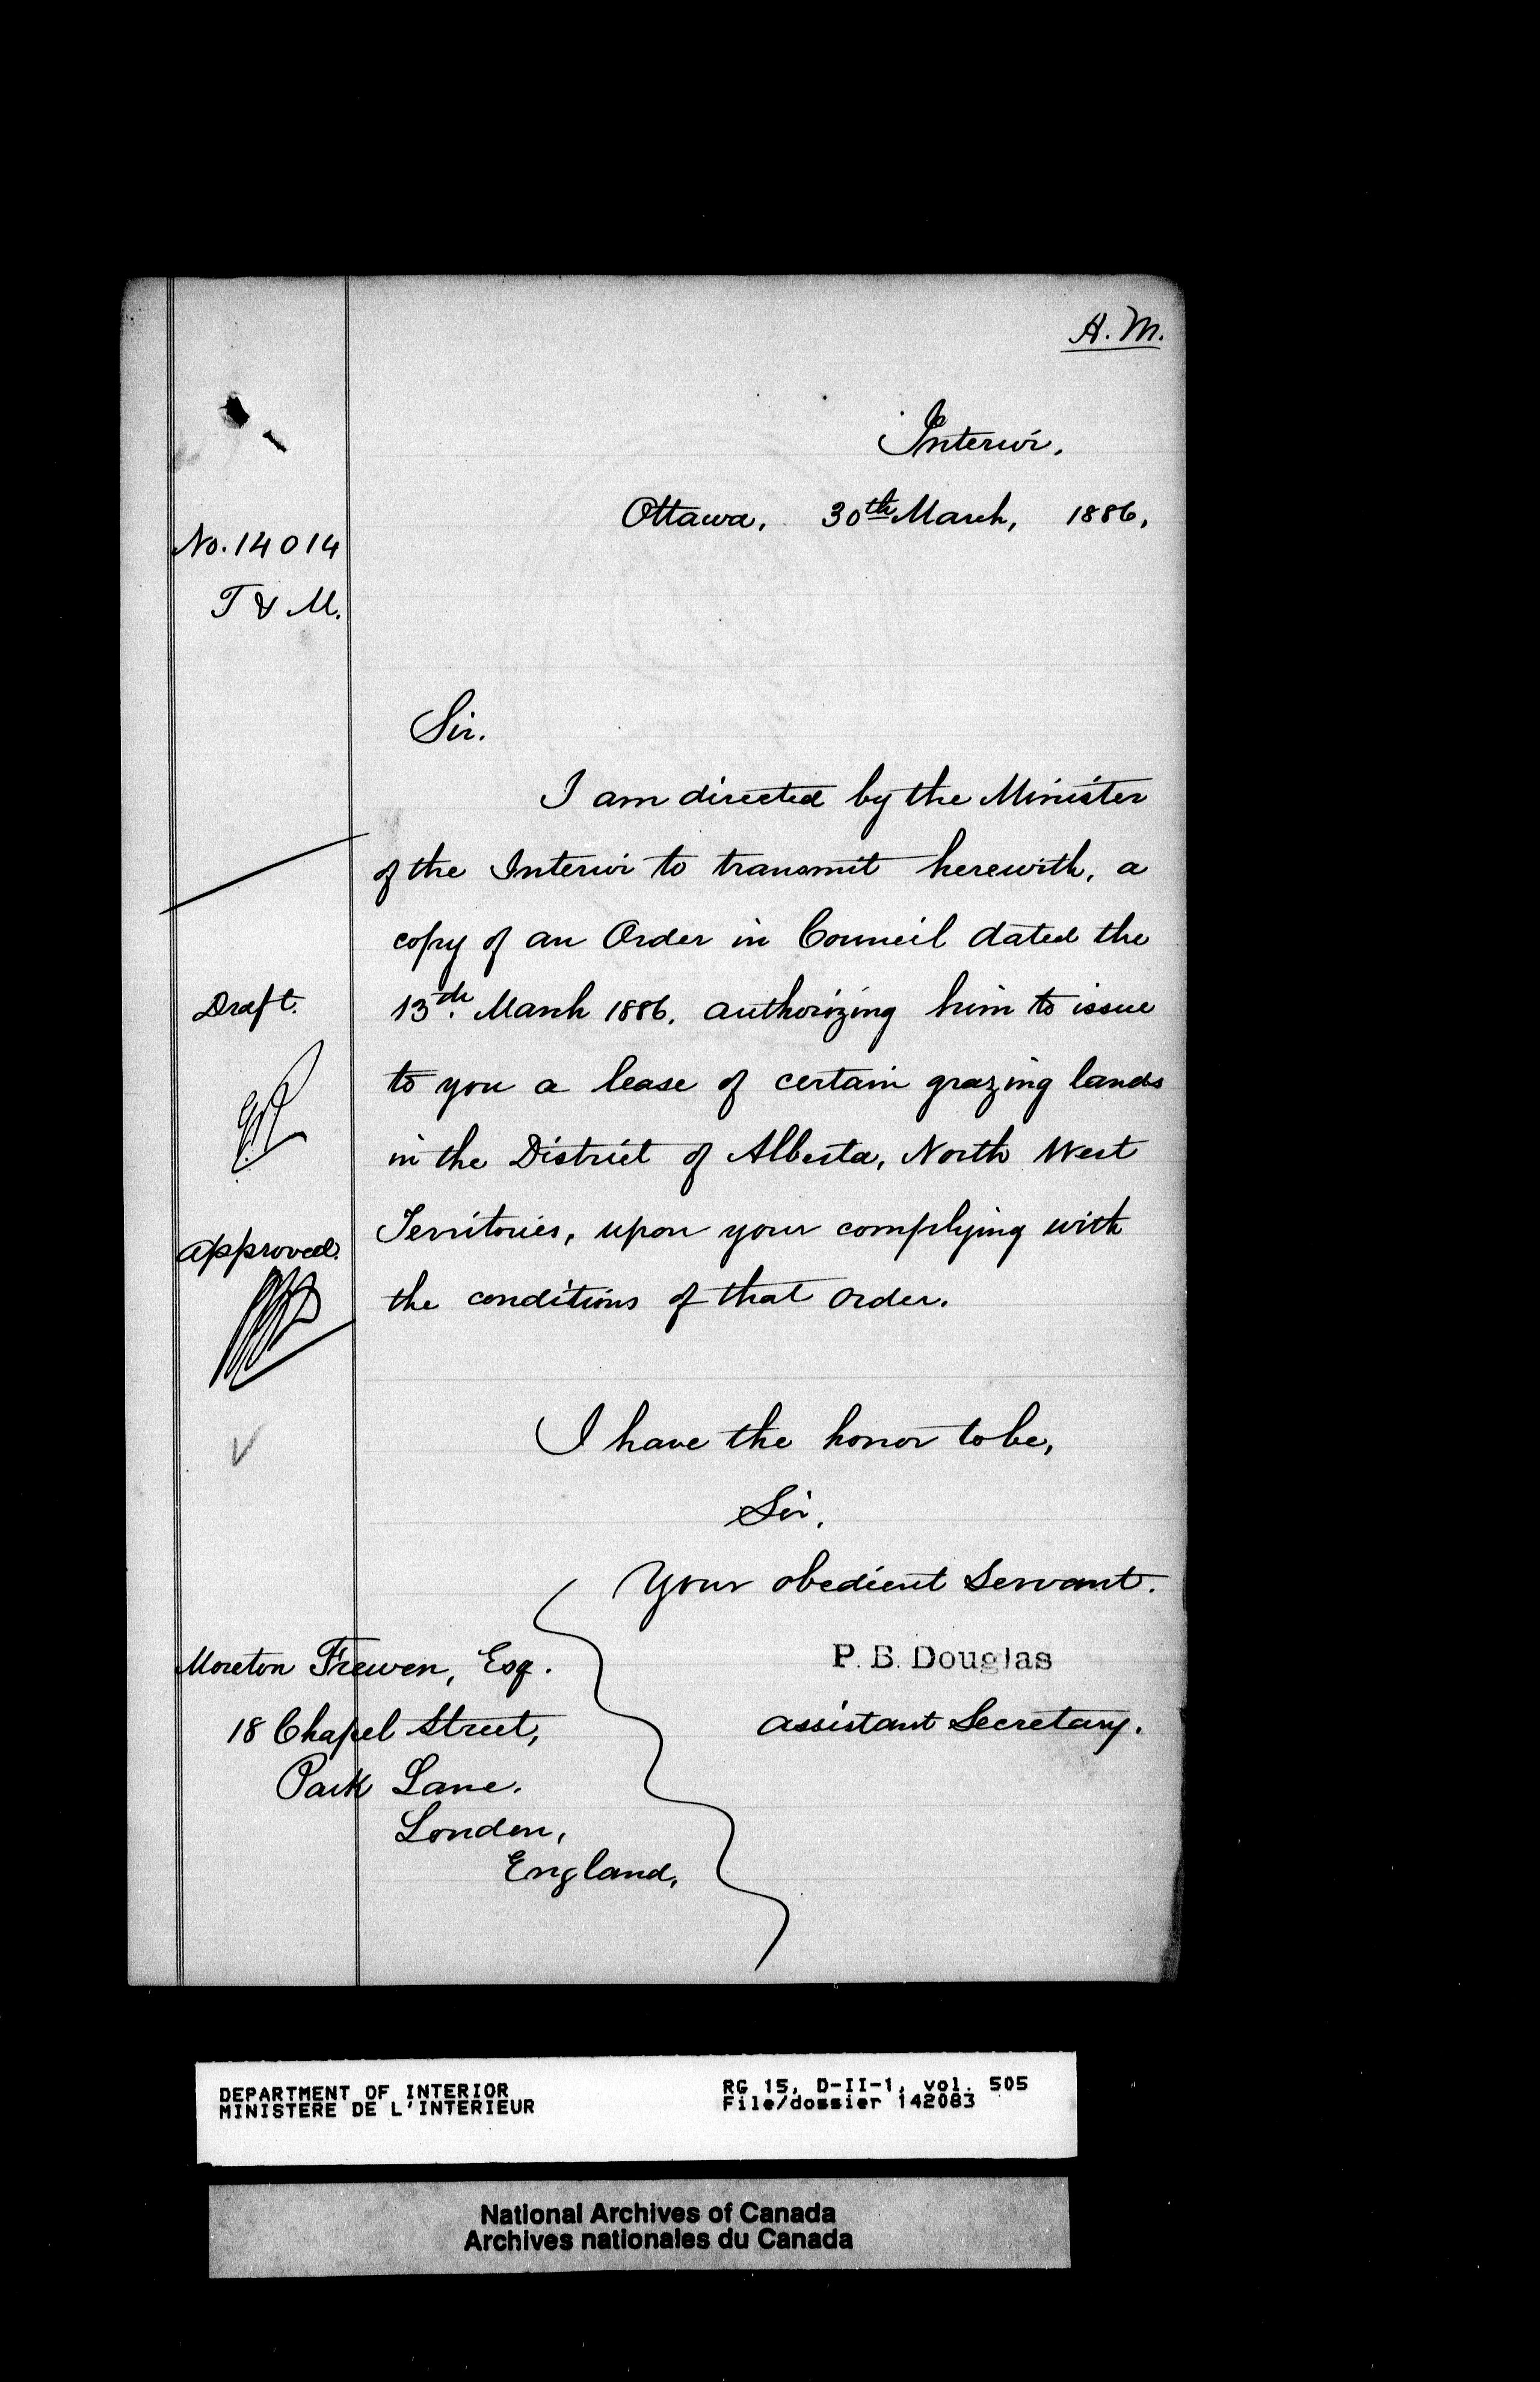 A. M.
Interior,
Ottawa, 30th March, 1886,
No. 14014
T & M.
Sir.
I am directed by the Minister
of the Interior to transmit herewith, a
copy of an Order in Council dated the
13th. March 1886. authorizing him to issue
to you a lease of certain grazing lands
in the District of Alberta, North West
Territories, upon your complying with
the conditions of that order.
Draft.
approved.
I have the honor to be,
Sir.
Your obedient Servant.
P. B. Douglas
assistant Secretary.
Moreton Frewen, Esq.
18 Chapel Street,
Park Lane.
London,
England,
DEPARTMENT OF INTERIOR
MINISTERE DE L'INTERIEUR
RG 15, D-II-1, vol. 505
File/dossier 142083
National Archives of Canada
Archives nationales du Canada